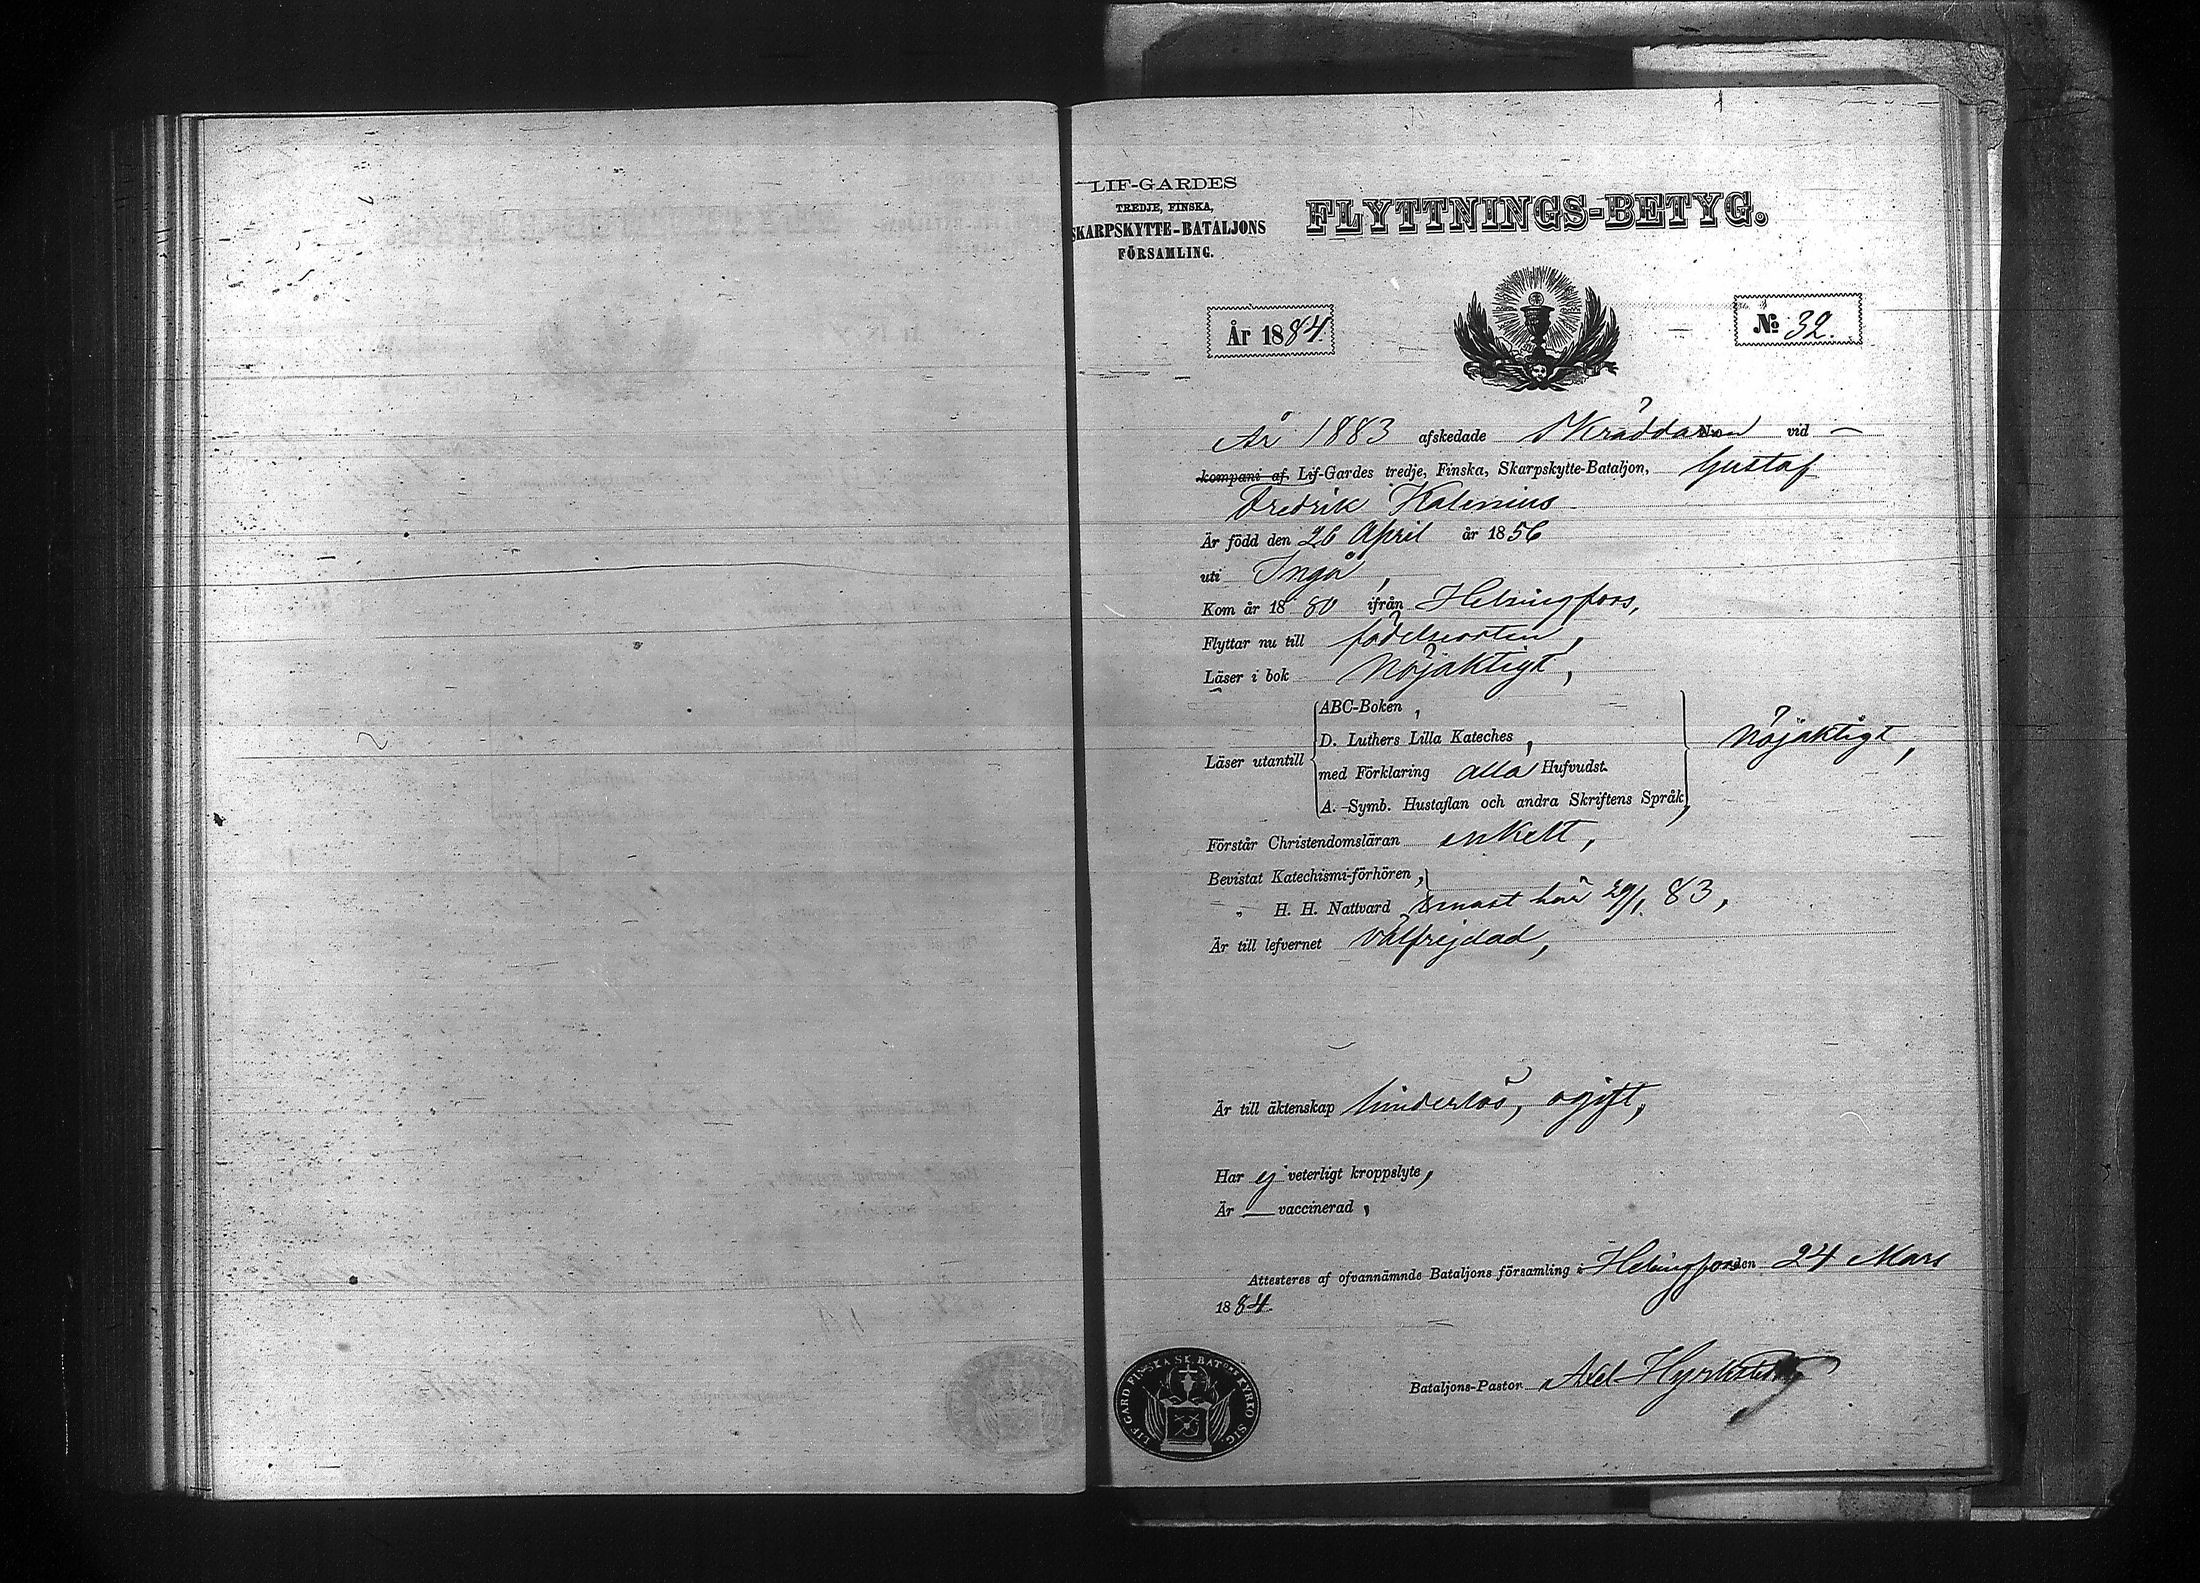 LIF-GARDES
TREDJE, FINSKA,
SKARPSKYTTE-BATALJONS
FÖRSAMLING.
FLYTTNINGS-BETYG.
År 1884.
№ 32.
År 1883 afskedade Skräddaren No vid —
kompani af Lif-Gardes tredje, Finska, Skarpskytte-Bataljon, Gustaf
Fredrik Kalenius
Är född den 26 April år 1856
uti Ingå,
Kom år 1880 ifrån Helsingfors,
Flyttar nu till födelseorten,
Läser i bok Nöjaktigt,
Läser utantill
ABC-Boken,
D. Luthers Lilla Kateches,
med Förklaring alla Hufvudst.
A. Symb. Hustaflan och andra Skriftens Språk,
Nöjaktigt,
Förstår Christendomsläran enkelt,
Bevistat Katechismi-förhören,
„ H. H. Nattvard senast här 29/1 83,
Är till lefvernet Välfrejdad,
Är till äktenskap hinderlös, ogift,
Har ej veterligt kroppslyte,
Är — vaccinerad,
Attesteres af ofvannämnde Bataljons församling i Helsingfors den 24 Mars
1884.
Bataljons-Pastor Axel
LIF. GARD FINSKA SK. BAT:ONS KYRKO SIG.